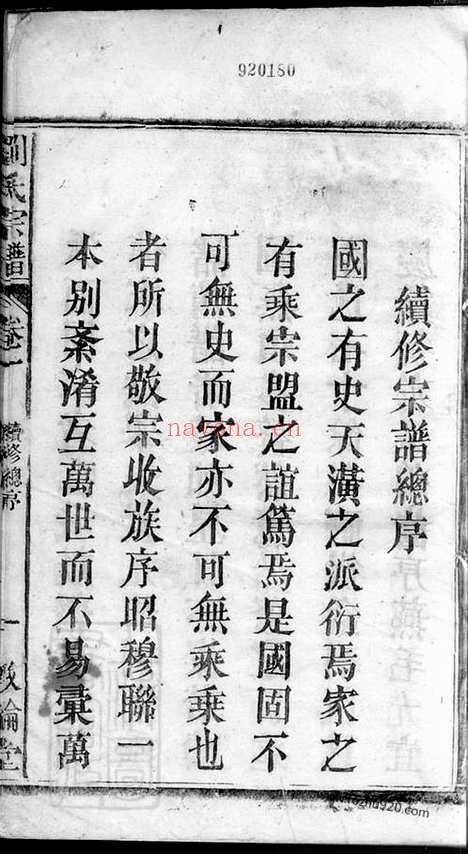 920180
續修宗譜總序
國之有史天潢之派衍焉家之
有乘宗盟之誼篤焉是國固不
可無史而家亦不可無乘乘也
者所以敬宗收族序昭穆聯一
本別紊淆互萬世而不易彙萬
劉氏宗譜
卷一
續修總序
一
敦倫堂
navona.cn